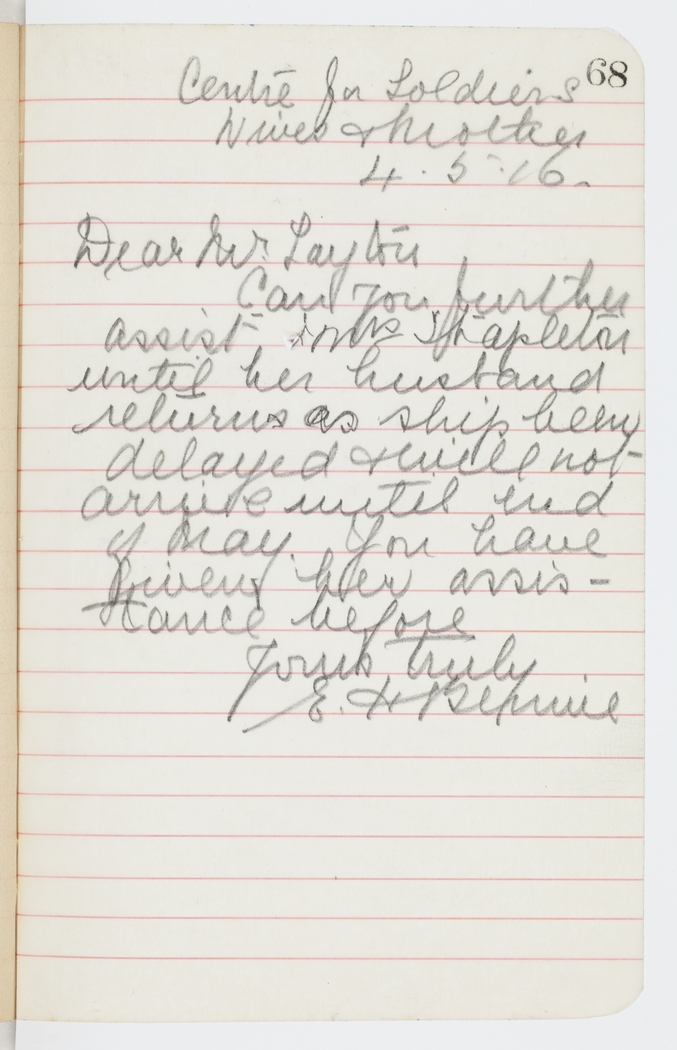 68
Centre for Soldiers
Wives & Mothers
4.5.16.
Dear Mr. Layton
Can you further
assist Mrs Stapleton
until her husband
returns as ship been
delayed & will not
arrive until end
of May. You have
given her assis-
tance before
Yours truly
E.